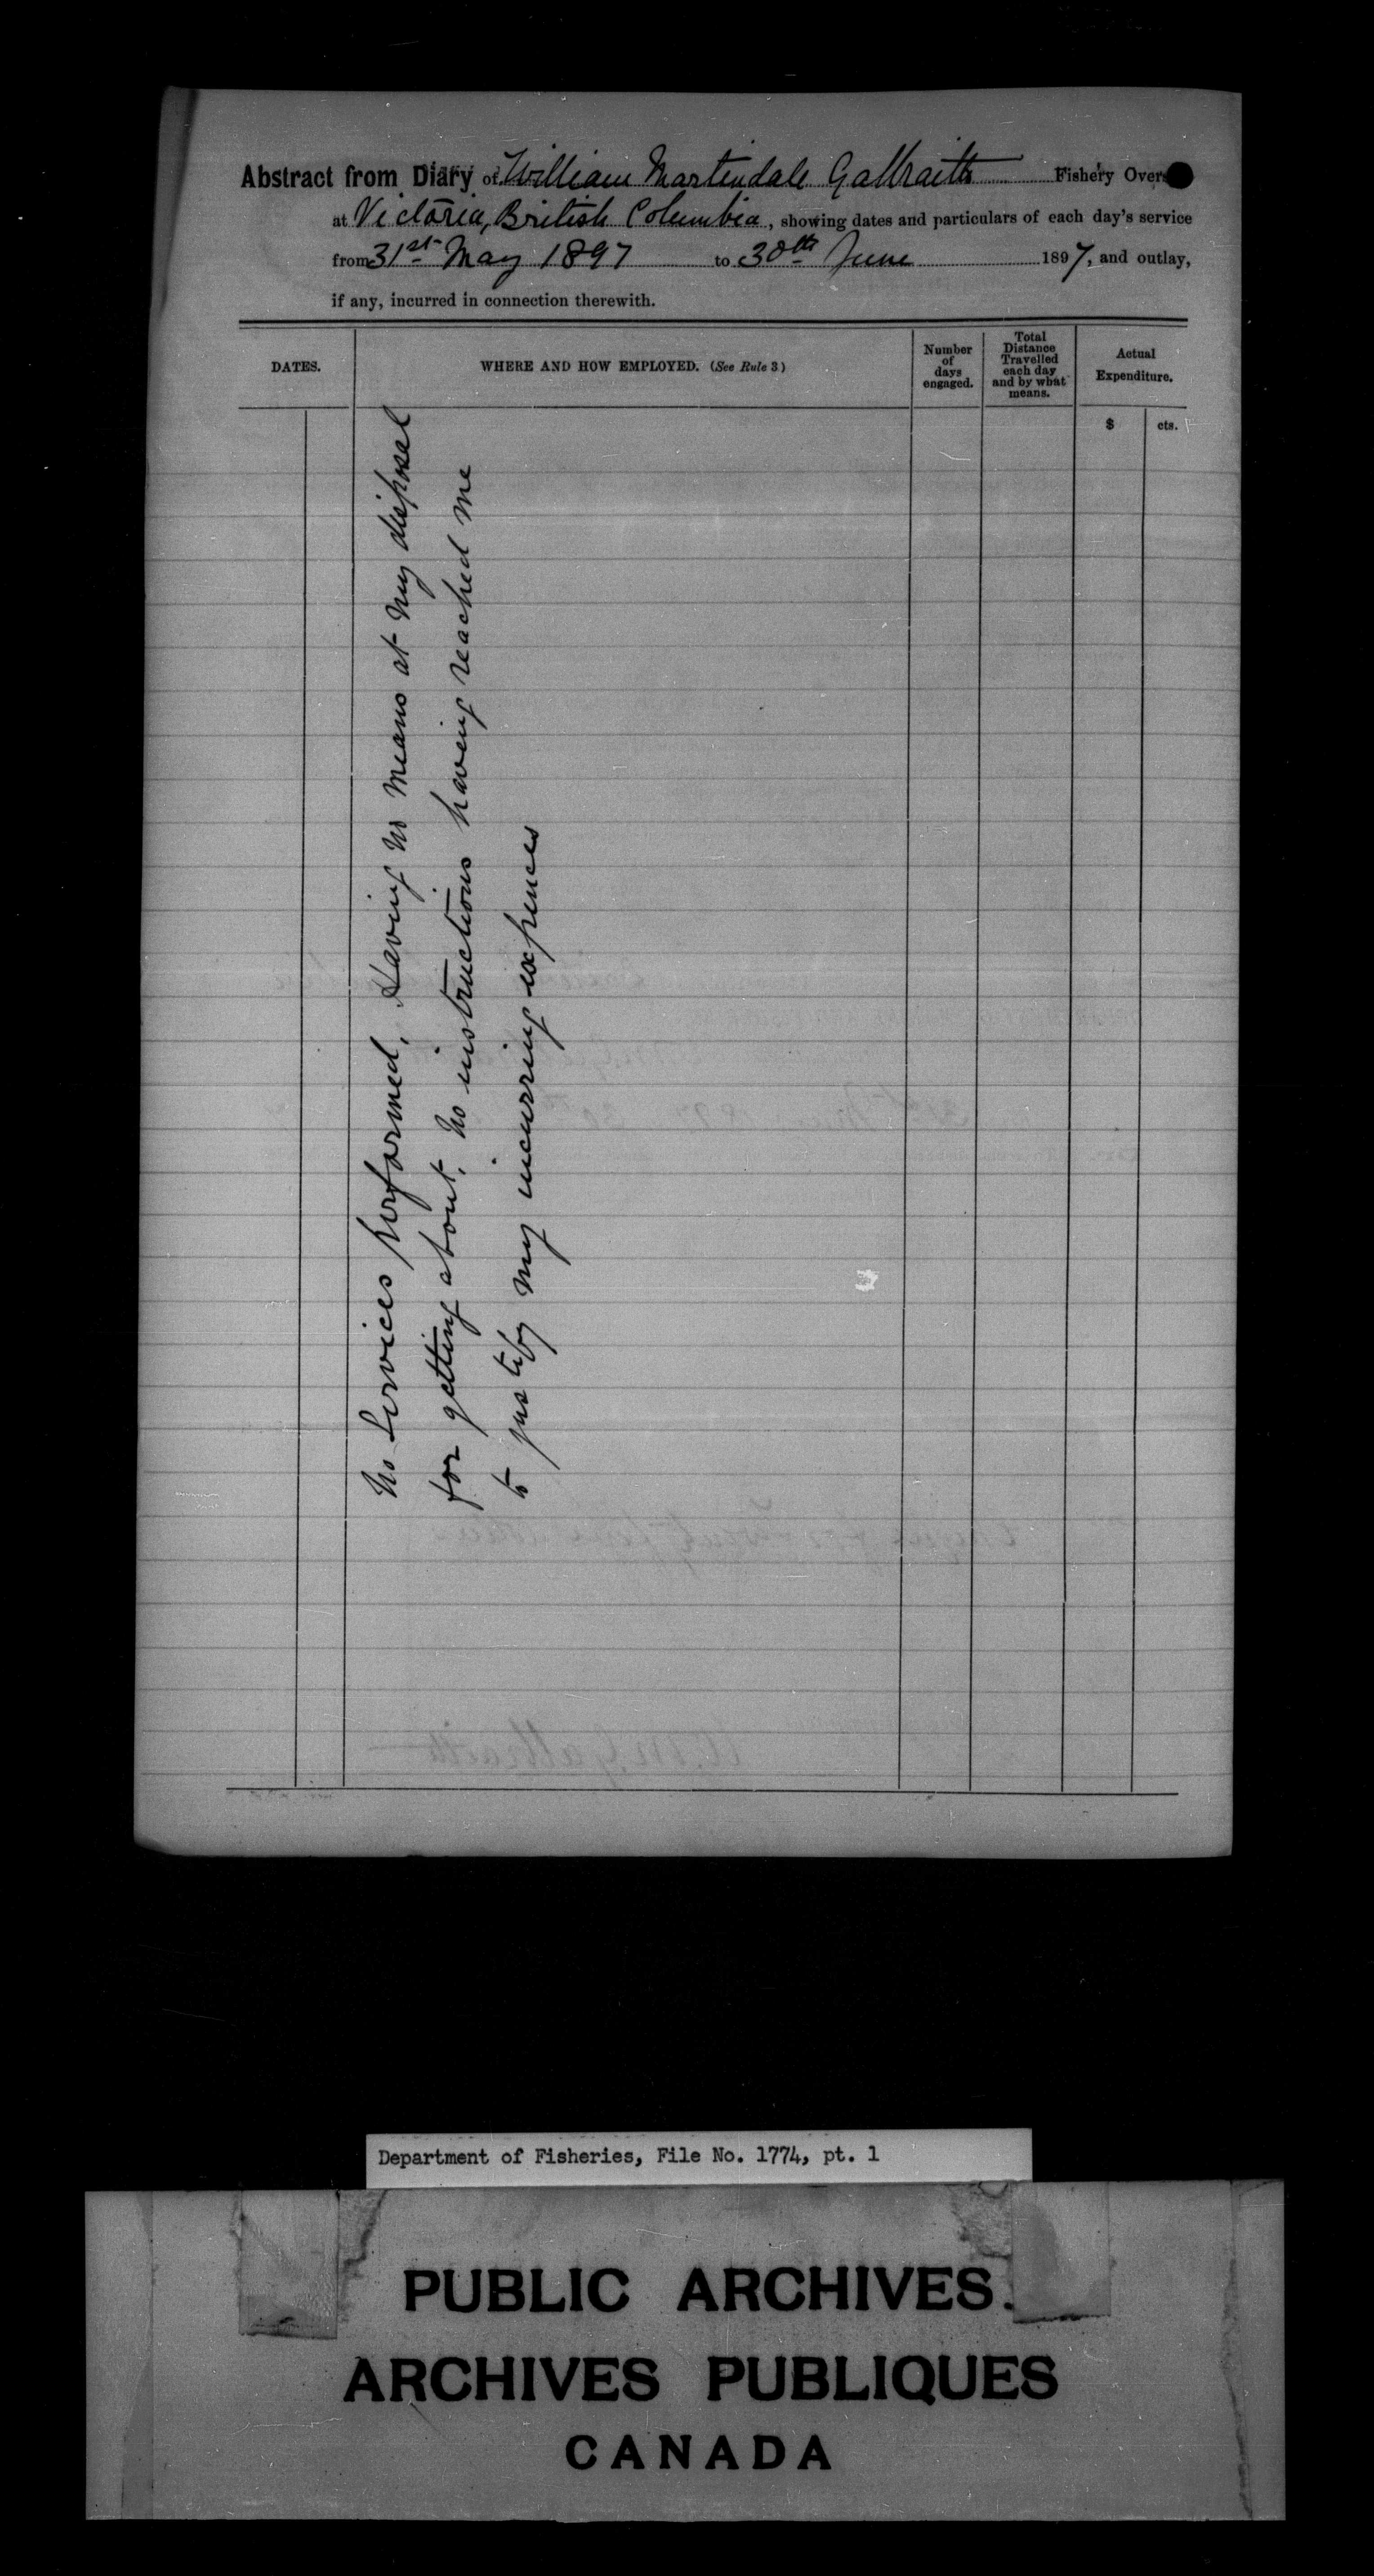 Abstract from Diary of William Martindale Galbraith Fishery Overs
at Victoria, British Columbia, showing dates and particulars of each day's service
from 31st May 1897 to 30th June 1897, and outlay,
if any, incurred in connection therewith.
DATES.
WHERE AND HOW EMPLOYED. (See Rule 3)
Number
of
days
engaged.
Total
Distance
Travelled
each day
and by what
means.
Actual
Expenditure.
$ cts.
No Services performed, Having no means at my disposal
for getting about, no instructions having reached me
to justify my incurring expences
Department of Fisheries, File No. 1774, pt. 1
PUBLIC ARCHIVES
ARCHIVES PUBLIQUES
CANADA